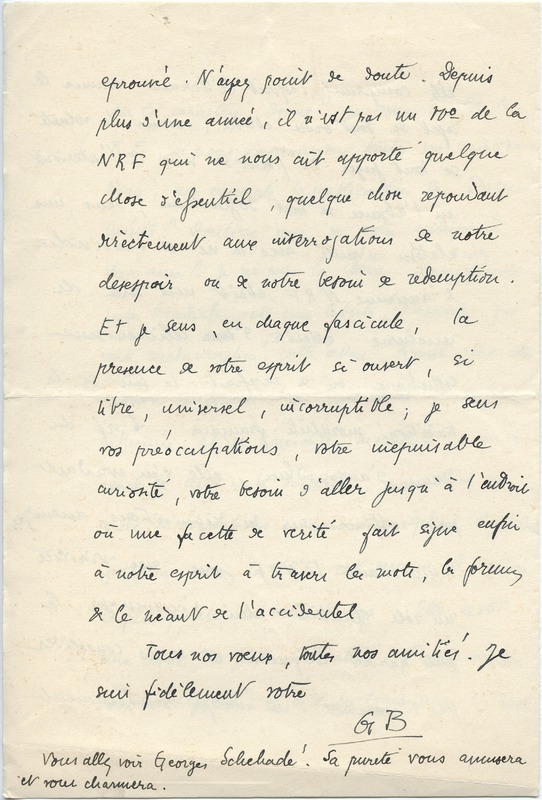 eprouvé. N'ayez point de doute. Depuis
plus d'une année, il n'est pas un no de la
NRF qui ne nous ait apporté quelque
chose d'essentiel, quelque chose repondant
directement aux interrogations de notre
desespoir ou de notre besoin de redemption.
Et je sens, en chaque fascicule, la
presence de votre esprit si ouvert, si
libre, universel, incorruptible; je sens
vos préoccupations, votre inepuisable
curiosité, votre besoin d'aller jusqu'à l'endroit
où une facette de verité fait signe enfin
à notre esprit à travers les mots, les formes
& le néant de l'accidentel
Tous nos voeux, toutes nos amitiés. Je
suis fidèlement votre
GB
Vous allez voir Georges Schehadé. Sa pureté vous amusera
et vous charmera.